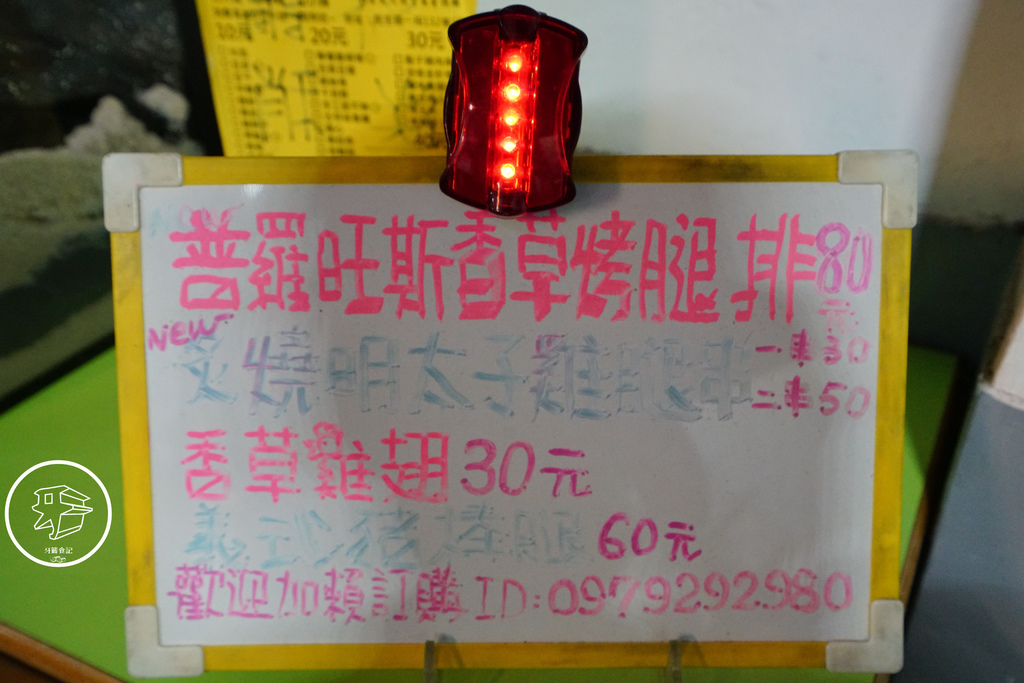 10元 20元 30元
普羅旺斯香草烤腿排80元
NEW
炙燒明太子雞腿串 一串30
二串50
香草雞翅30元
60元
歡迎加賴訂購 ID:0979292980
牙籤食記